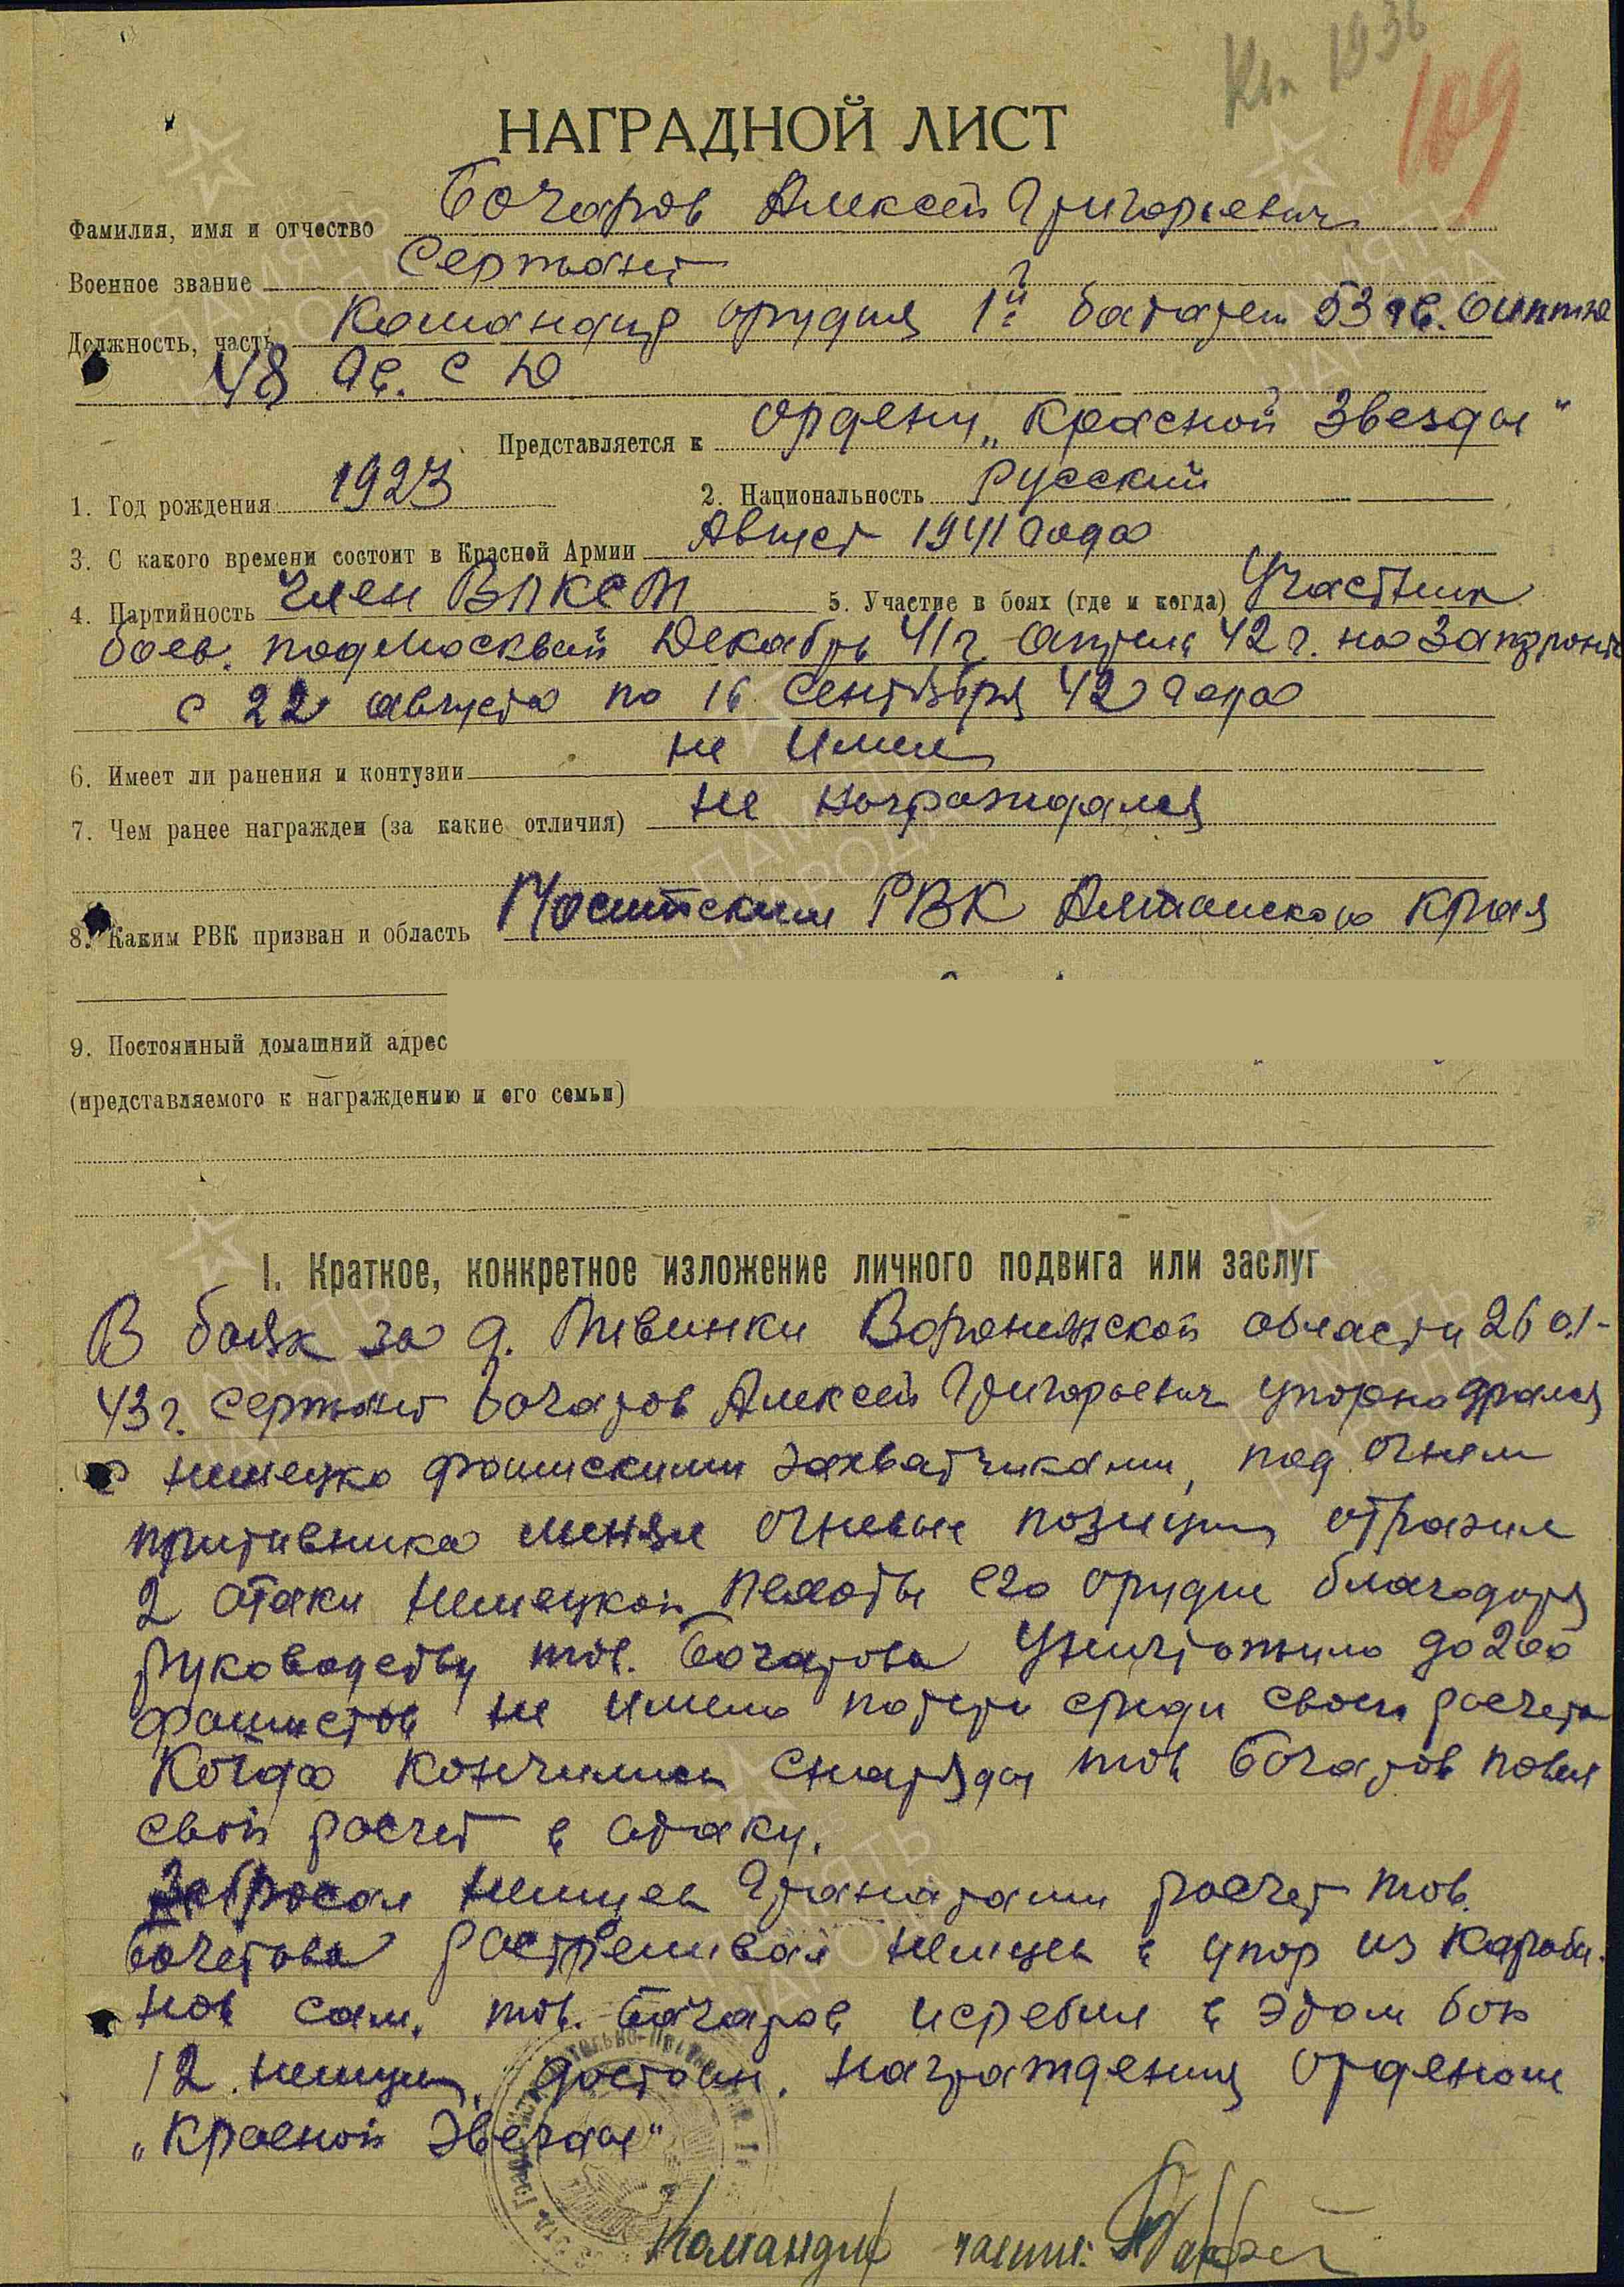 109
НАГРАДНОЙ ЛИСТ
Фамилия, имя и отчество Бочаров Алексей Григорьевич
Военное звание Сержант
Должность, часть Командир орудия 1й батареи 53 гв. оиптд
48 гв. СД
Представляется к ордену „Красной Звезды"
1. Год рождения 1923 2. Национальность русский
3. С какого времени состоит в Красной Армии Август 1941 года
4. Партийность член ВЛКСМ 5. Участие в боях (где и когда) Участник
боев. под Москвой Декабрь 41г. апрель 42 г. на Запфронте
с 22 августа по 16 сентября 42 года
6. Имеет ли ранения и контузии не имел
7. Чем ранее награжден (за какие отличия) не награждался
8. Каким РВК призван и область РВК Алтайского края
9. Постоянный домашний адрес
(представляемого к награждению и его семьи)
I. Краткое, конкретное изложение личного подвига или заслуг
В боях за д. Воронежской области 26 01-
43г. сержант Бочаров Алексей Григорьевич упорно дрался
с немецко фашискими захватчиками, под огнем
противника меняя огневые позиции отразил
2 атаки немецкой пехоты его орудие благодаря
руководству тов. Бочарова уничтожило до 200
фашистов не имело потерь среди своего расчета
Когда кончились снаряды тов Бочаров повел
свой расчет в атаку.
Забросал немцев гранатами расчет тов.
Бочарова расстреливал немцев в упор из караби-
нов сам. тов. Бочаров истребил в этом бою
12 немцев. достоин. награждения орденом
„Красной Звезды"
Командир части:
ПАМЯТЬ
НАРОДА